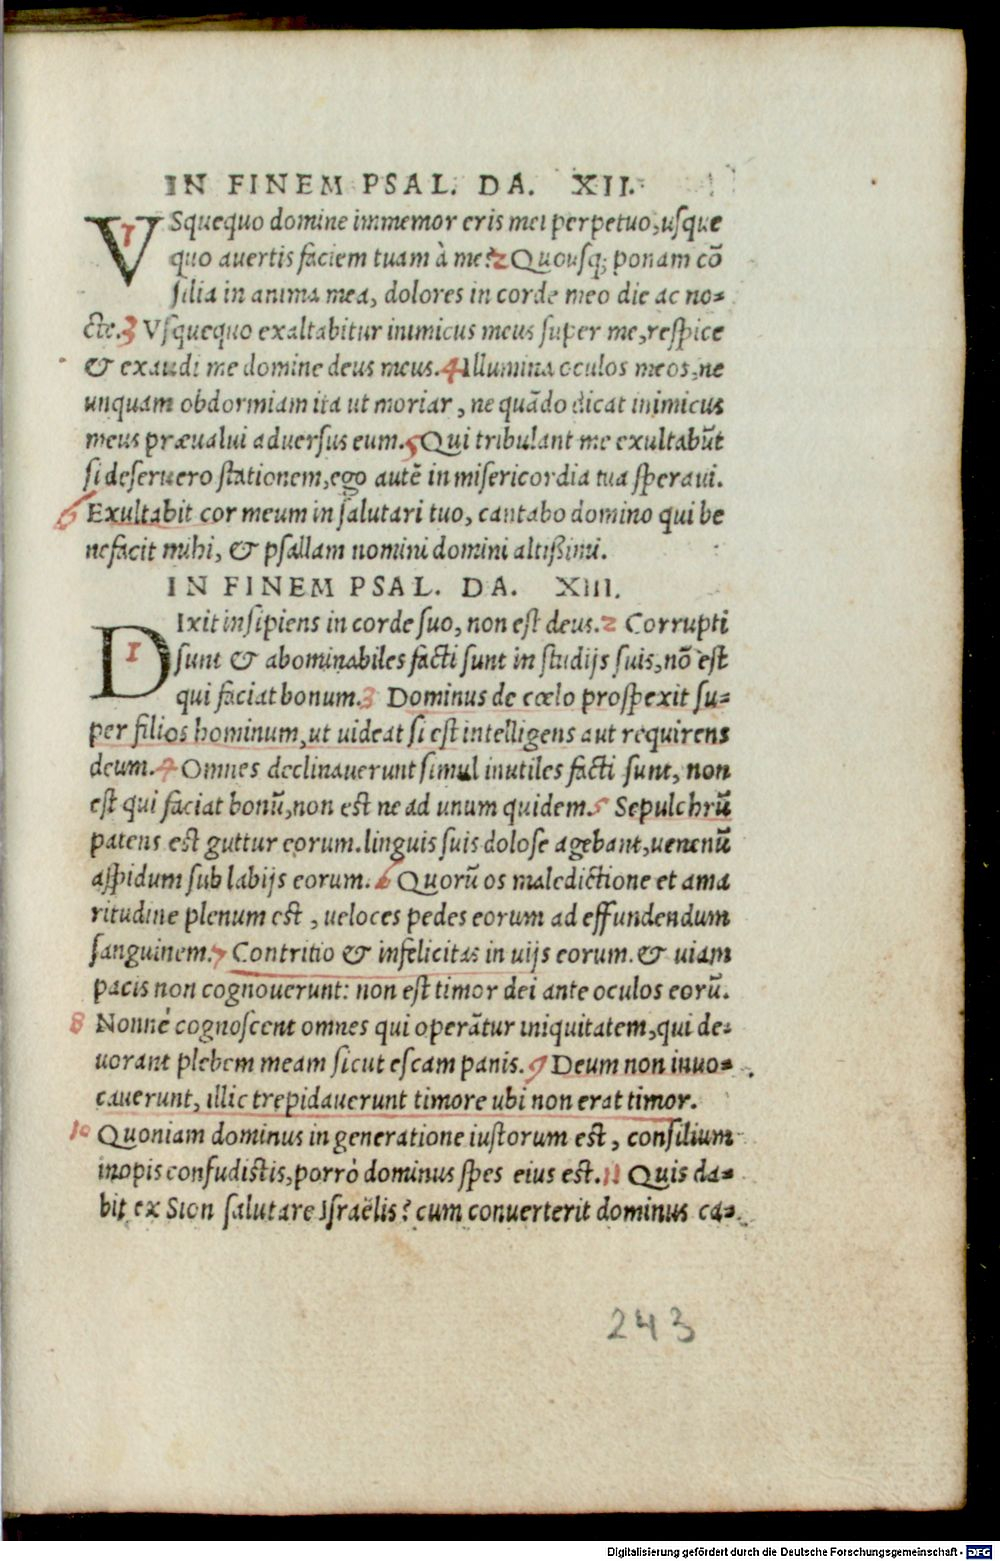 IN FINEM PSAL. DA. XII.
VSquequo domine immemor eris mei perpetuo, usque
quo avertis faciem tuam à me? 2 Quousq; ponam cō
silia in anima mea, dolores in corde meo die ac no-
cte. 3 Vsquequo exaltabitur inimicus meus super me, respice
& exaudi me domine deus meus. 4 Illumina oculos meos, ne
unquam obdormiam ita ut moriar, ne quādo dicat inimicus
meus prævalui adversus eum. 5 Qui tribulant me exultabūt
si deseruero stationem, ego autē in misericordia tua speravi.
6 Exultabit cor meum in salutari tuo, cantabo domino qui be
nefacit mihi, & psallam nomini domini altißimi.
IN FINEM PSAL. DA. XIII.
DIxit insipiens in corde suo, non est deus. 2 Corrupti
sunt & abominabiles facti sunt in studijs suis, nō est
qui faciat bonum. 3 Dominus de cœlo prospexit su-
per filios hominum, ut uideat si est intelligens aut requirens
deum. 4 Omnes declinauerunt simul inutiles facti sunt, non
est qui faciat bonū, non est ne ad unum quidem. 5 Sepulchrū
patens est guttur eorum. linguis suis dolose agebant, uenenū
aspidum sub labijs eorum. 6 Quorū os maledictione et ama
ritudine plenum est, ueloces pedes eorum ad effundendum
sanguinem. 7 Contritio & infelicitas in uijs eorum. & uiam
pacis non cognouerunt: non est timor dei ante oculos eorū.
8 Nonné cognoscent omnes qui operātur iniquitatem, qui de-
uorant plebem meam sicut escam panis. 9 Deum non inuo-
cauerunt, illic trepidauerunt timore ubi non erat timor.
10 Quoniam dominus in generatione iustorum est, consilium
inopis confudistis, porrò dominus spes eius est. 11 Quis da-
bit ex Sion salutare Israëlis? cum conuerterit dominus ca-
243
Digitalisierung gefördert durch die Deutsche Forschungsgemeinschaft - DFG